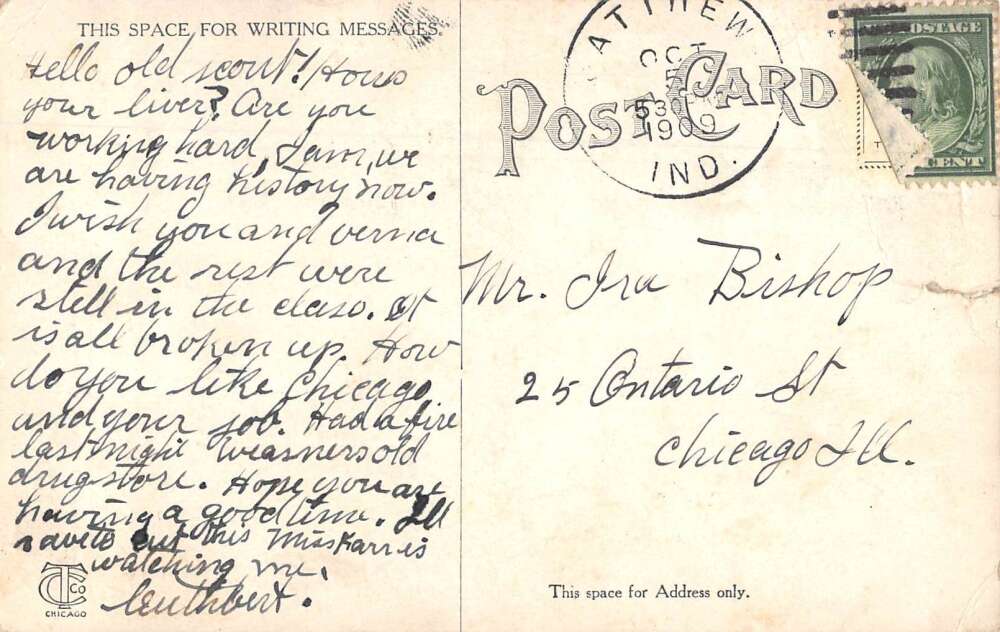 THIS SPACE FOR WRITING MESSAGES.
Hello old scout! Hows
your liver? Are you
working hard, I am, we
are having history now.
I wish you and verna
and the rest were
still in the class. It
is all broken up. How
do you like Chicago
and your job. Had a fire
last night Weasners old
drugstore. Hope you are
having a good time. Ill
have to cut this Miss Karr is
watching me.
Cuthbert.
CTCo
CHICAGO
POST CARD
MATTHEW
OCT
5
530
1909
IND.
POSTAGE
CENT
Mr. Ira Bishop
25 Ontario St
Chicago Ill.
This space for Address only.